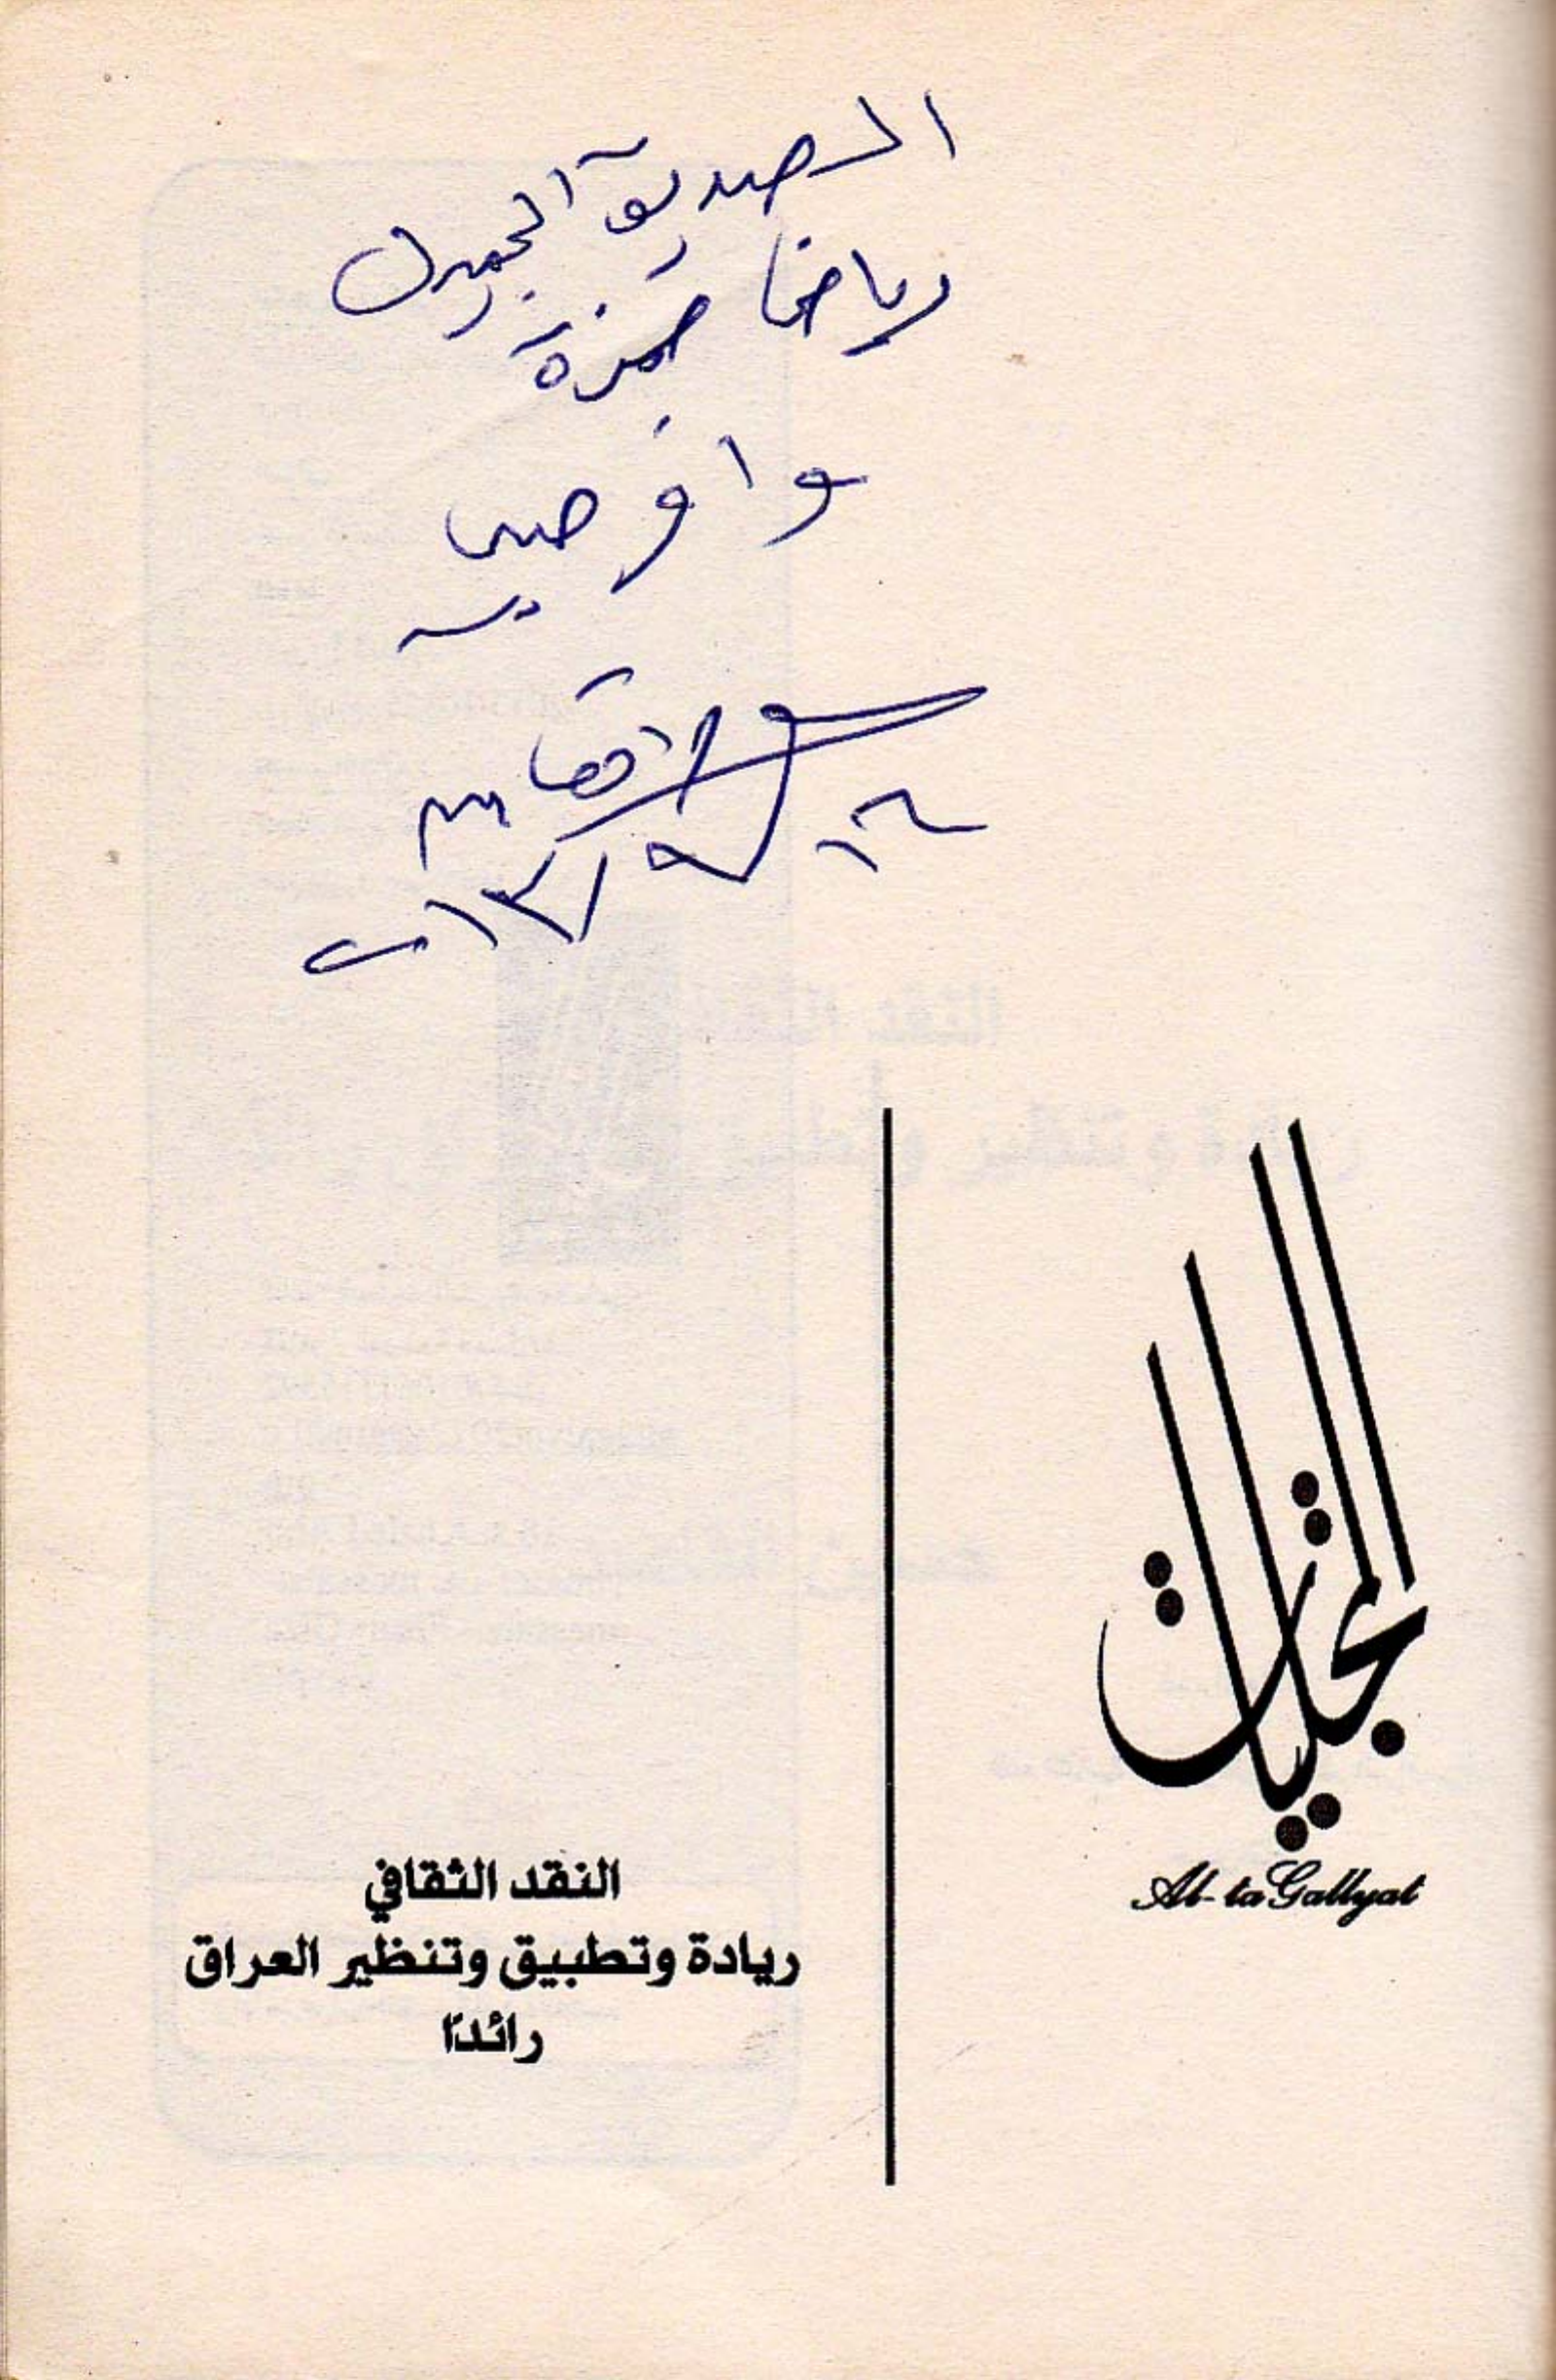 الصديق الجميل
رياض حمزة
وافر حبي
التجليات
Al-taGallyat
النقد الثقافي
ريادة وتطبيق وتنظير العراق
رائدًا